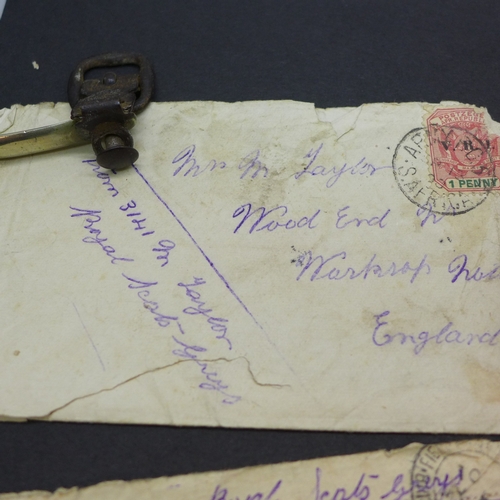 Mrs M Taylor
Wood End
Worksop
England
From 3141 M Taylor
Royal Scots Greys
V.R.I.
1 PENNY
ARMY
S. AFRICA
Scots Greys